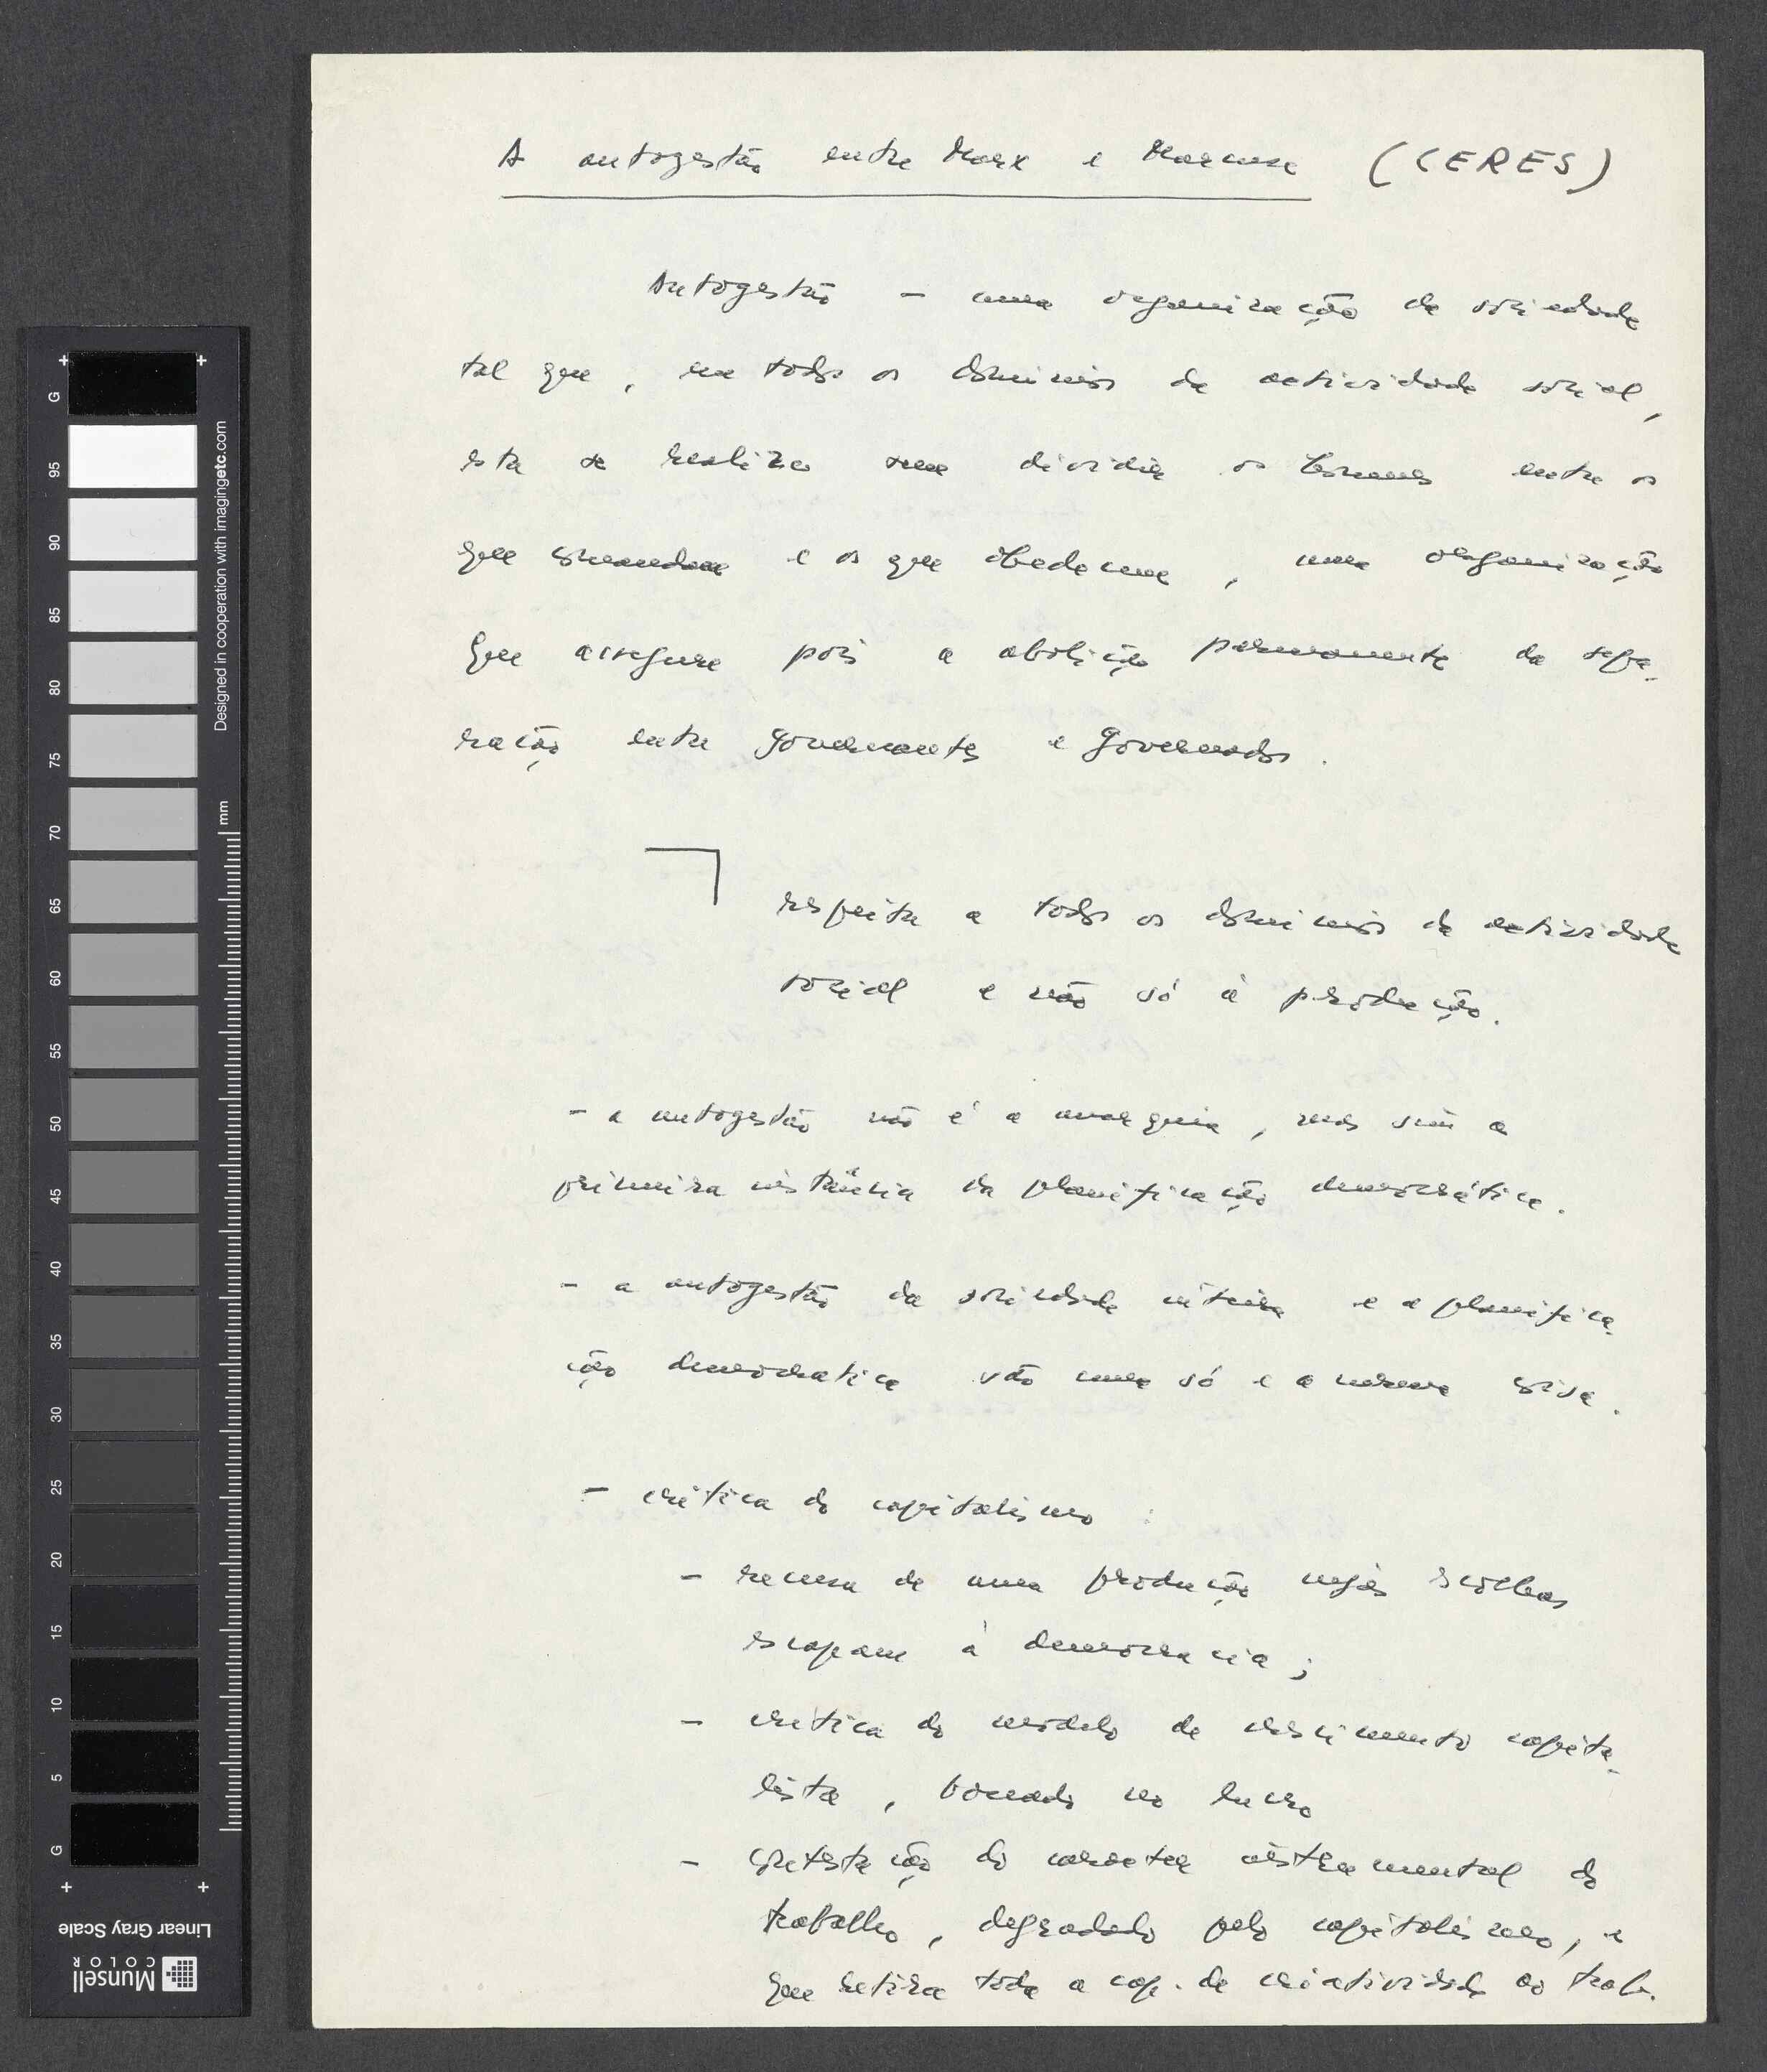 A autogestão entre Marx e Marcuse (CERES)
Autogestão - uma organização da sociedade
tal que, em todos os domínios da actividade social,
esta se realiza sem dividir os homens entre os
que comandam e os que obedecem, uma organização
que assegure pois a abolição permanente da sepa-
ração entre governantes e governados.
respeita a todos os domínios da actividade
social e não só à produção.
- a autogestão não é a anarquia, mas sim a
primeira instância da planificação democrática.
- a autogestão da sociedade inteira e a planifica-
ção democratica são uma só e a mesma coisa.
- critica do capitalismo :
- recusa de uma produção cujas escolhas
escapam à democracia;
- critica do modelo de crescimento capita-
lista, baseado no lucro
- contestação do caracter instrumental do
trabalho, degradado pelo capitalismo, e
que retira toda a cap. de criatividade ao trab.
G
95
90
85
80
75
70
65
60
55
50
45
40
35
30
25
20
15
10
5
G
mm
Designed in cooperation with imagingetc.com
Linear Gray Scale
Munsell
COLOR